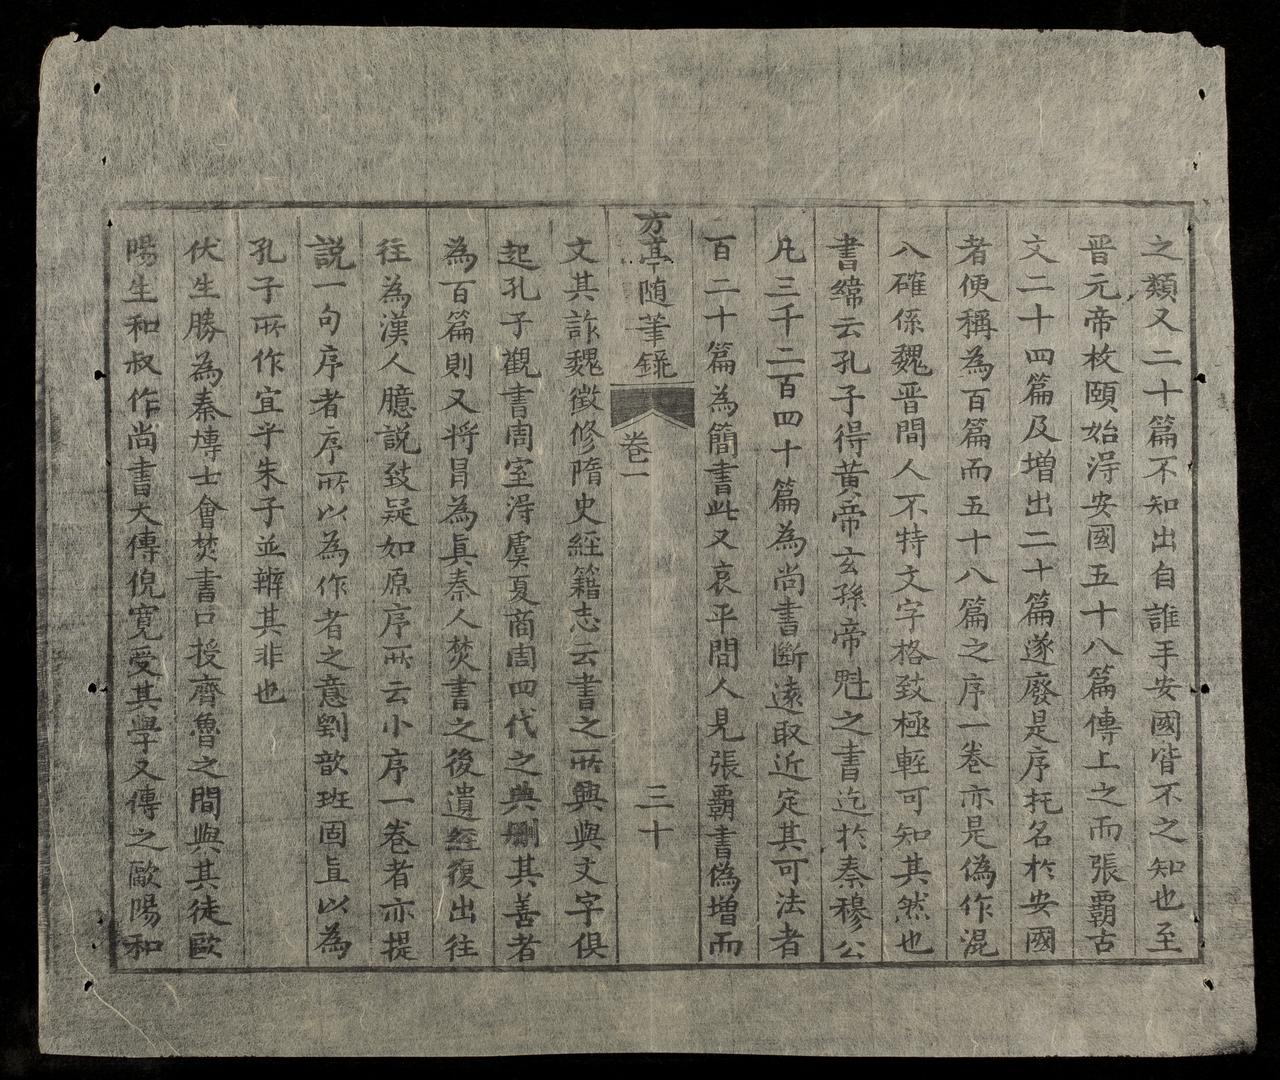 之類又二十篇不知出自誰手安國皆不之知也至
晋元帝枚頤始淂安國五十八篇傳上之而張霸古
文二十四篇及增出二十篇遂廢是序托名於安國
者便稱為百篇而五十八篇之序一卷亦是偽作混
八確係魏晋間人不特文字格致極輊可知其然也
書緯云孔子得黄帝玄孫帝魁之書迄於秦穆公
凡三千二百四十篇為尚書斷遠取近定其可法者
百二十篇為簡書此又哀平間人見張霸書偽增而
方亭随筆錄 卷一 三十
文其詐魏徵修隋史經籍志云書之所興與文字俱
起孔子觀書周室淂虞夏商周四代之典删其善者
為百篇則又将冐為眞秦人焚書之後遺經復出往
往為漢人臆説致疑如原序所云小序一卷者亦提
説一句序者序所以為作者之意劉歆班固直以為
孔子所作宜乎朱子並辨其非也
伏生勝為秦博士會焚書口授齊魯之間與其徒歐
陽生和叔作尚書大傳倪寬受其學又傳之歐陽和